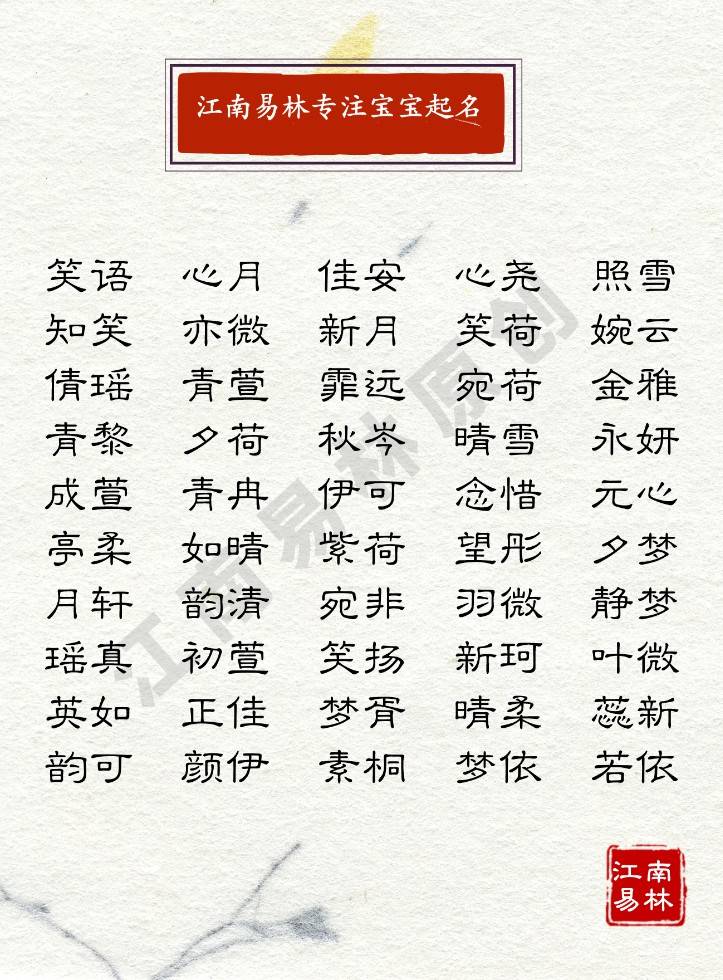 江南易林专注宝宝起名
笑语 心月 佳安 心尧 照雪
知笑 亦微 新月 笑荷 婉云
倩瑶 青萱 霏远 宛荷 金雅
青黎 夕荷 秋岑 晴雪 永妍
成萱 青冉 伊可 念惜 元心
亭柔 如晴 紫荷 望彤 夕梦
月轩 韵清 宛非 羽微 静梦
瑶真 初萱 笑扬 新珂 叶微
英如 正佳 梦胥 晴柔 蕊新
韵可 颜伊 素桐 梦依 若依
江南易林原创
江南
易林